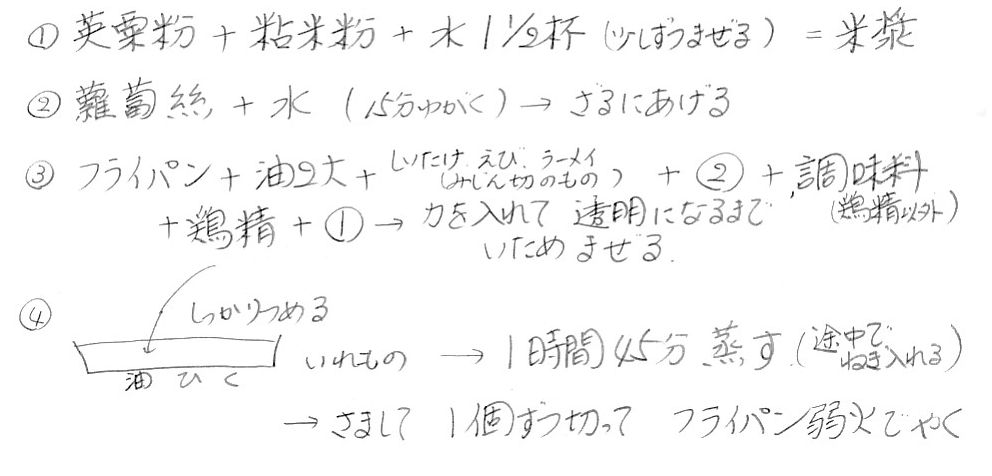 ① 英粟粉 + 粘米粉 + 水 1 1/2杯 (少しずつまぜる) = 米漿
② 蘿蔔絲 + 水 (15分ゆがく) → ざるにあげる
③ フライパン + 油2大 + しいたけ えび ラーメイ (みじん切のもの) + ② + 調味料 (鶏精以外)
+ 鶏精 + ① → 力を入れて 透明になるまで
いため ませる.
④ しっかりつめる
いれもの → 1時間45分 蒸す (途中で ねぎ入れる)
油 ひく
→ さまして 1個ずつ切って フライパン弱火でやく